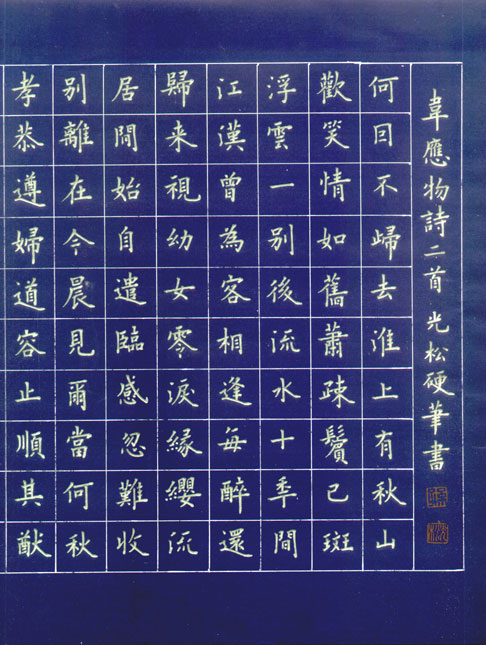 孝恭遵婦道容止順其猷
別離在今晨見爾當何秋
居閒始自遣臨感忽難收
歸来視幼女零淚緣纓流
江漢曾為客相逢每醉還
浮雲一別後流水十秊間
歡笑情如舊蕭疎鬢已斑
何囙不歸去淮上有秋山
韋應物詩二首 光松硬筆書